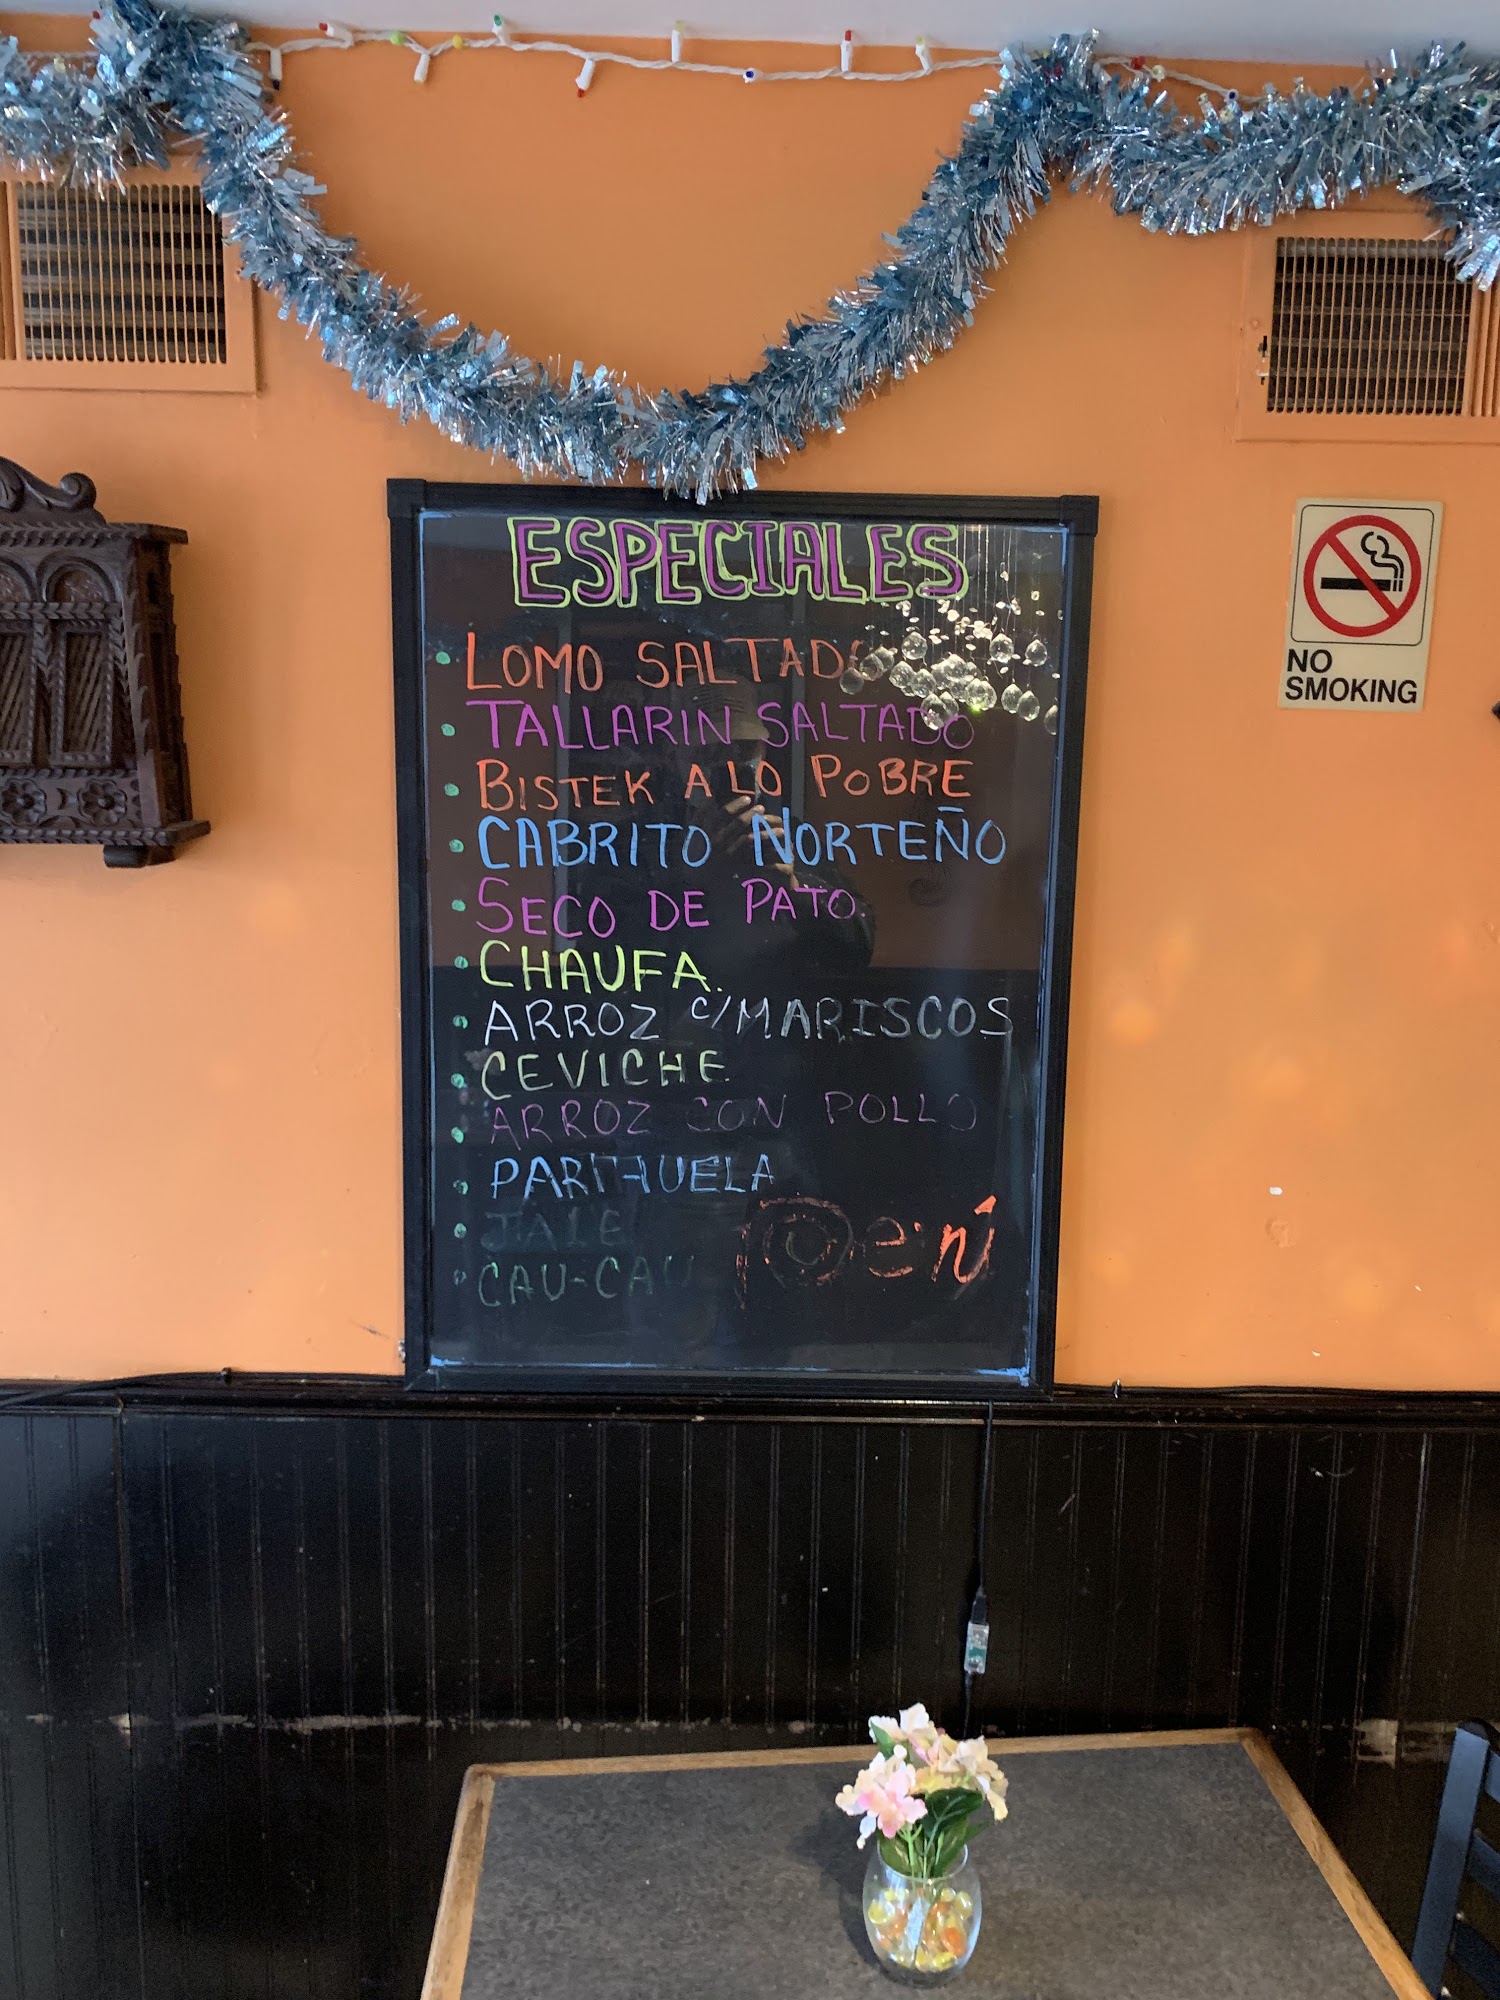 ESPECIALES
• LOMO SALTADO
• TALLARIN SALTADO
• BISTEK A LO POBRE
• CABRITO NORTEÑO
• SECO DE PATO.
• CHAUFA.
• ARROZ C/MARISCOS
• CEVICHE
• ARROZ CON POLLO
• PARIHUELA
• JALE
• CAU-CAU
NO
SMOKING